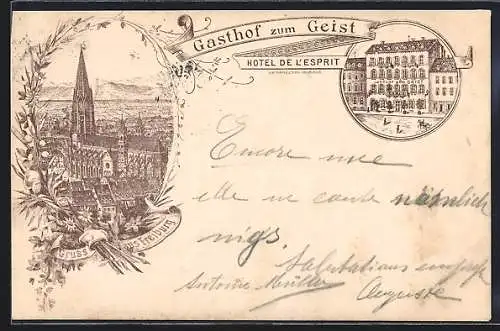 Gasthof zum Geist
HOTEL DE L'ESPRIT
Gruss aus Freiburg
Encore une
elle ne coute nämlich
nigs.
Salutations
Antoine Müller
Auguste